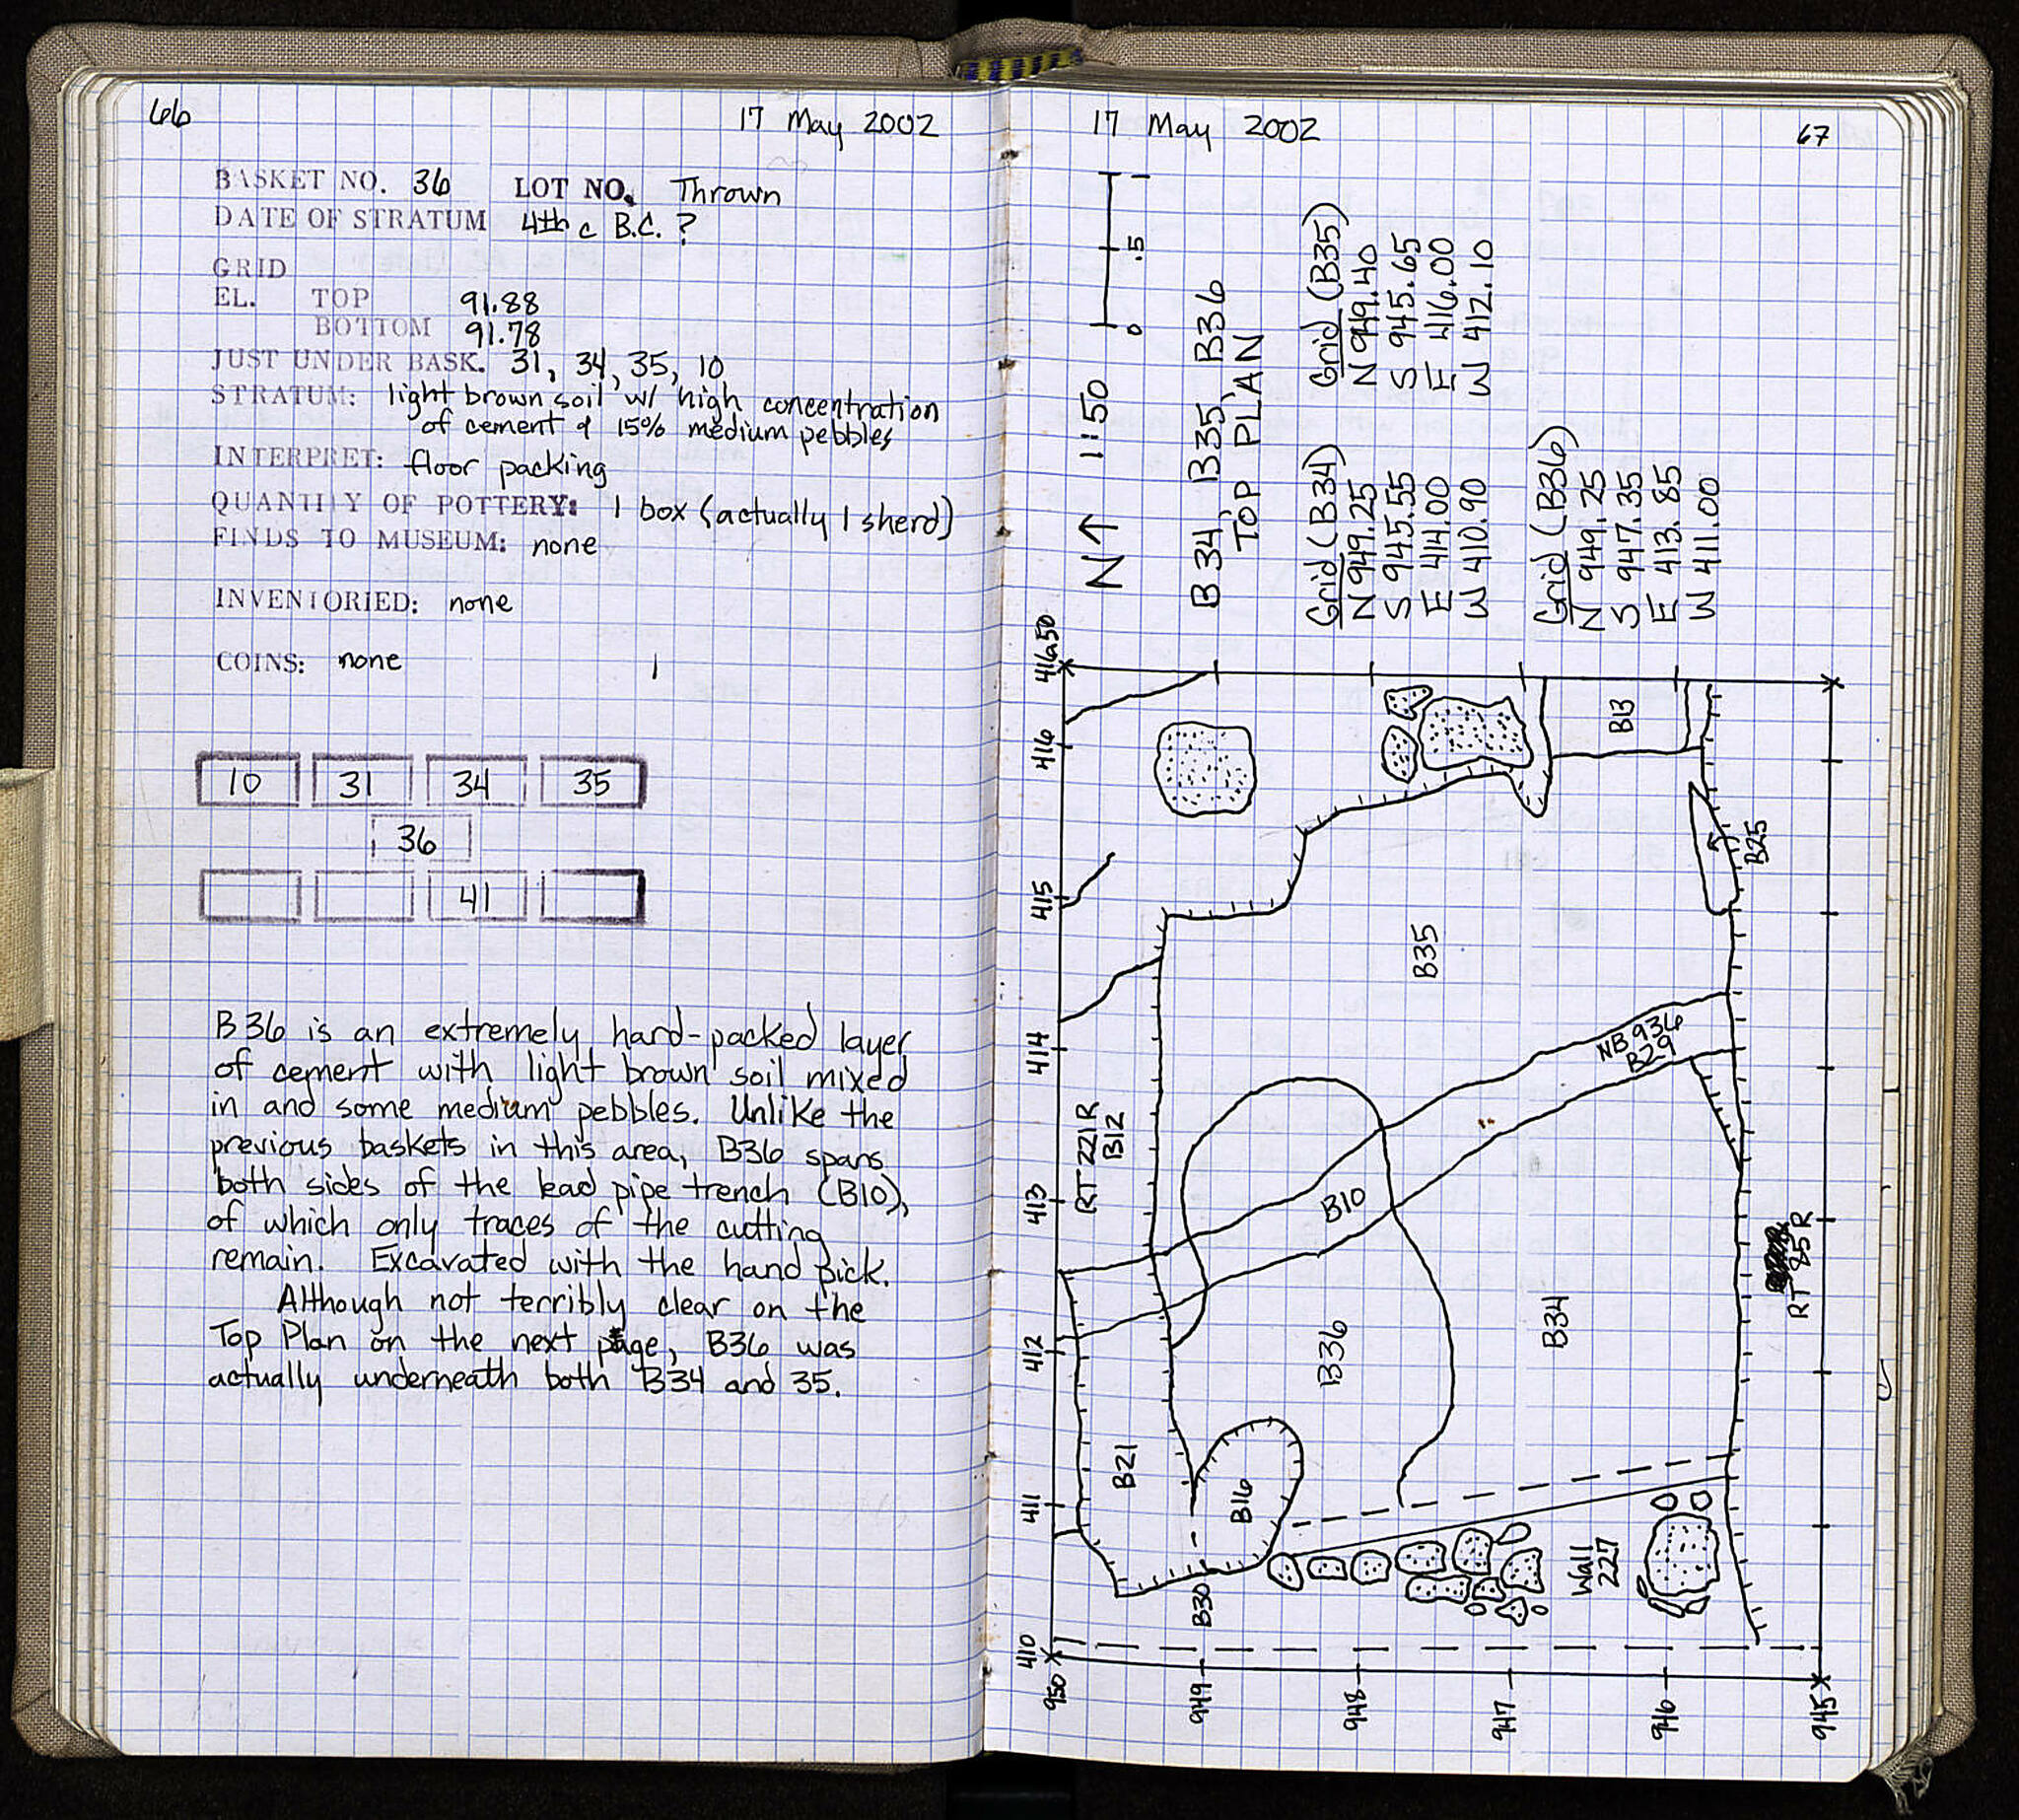 66
17 May 2002
BASKET NO. 36 LOT NO. Thrown
DATE OF STRATUM 4th c B.C. ?
GRID
EL. TOP 91.88
BOTTOM 91.78
JUST UNDER BASK. 31, 34, 35, 10
STRATUM: light brown soil w/ high concentration
of cement & 15% medium pebbles
INTERPRET: floor packing
QUANTITY OF POTTERY: 1 box (actually 1 sherd)
FINDS TO MUSEUM: none
INVENTORIED: none
COINS: none
10 31 34 35
36
41
B36 is an extremely hard-packed layer
of cement with light brown soil mixed
in and some medium pebbles. Unlike the
previous baskets in this area, B36 spans
both sides of the lead pipe trench (B10),
of which only traces of the cutting
remain. Excavated with the hand pick.
Although not terribly clear on the
Top Plan on the next page, B36 was
actually underneath both B34 and 35.
17 May 2002
67
N↑ 1:50
0 .5 1
B34, B35, B36
TOP PLAN
Grid (B34)
N 949.25
S 945.55
E 414.00
W 410.90
Grid (B35)
N 949.40
S 945.65
E 416.00
W 412.10
Grid (B36)
N 949.25
S 947.35
E 413.85
W 411.00
416.50
416
415
414
413
412
411
410
950
949
948
947
946
945
B13
B25
B35
NB 936
B29
RT 221R
B12
B10
RT 85R
B36
B34
B21
B16
B30
Wall
227